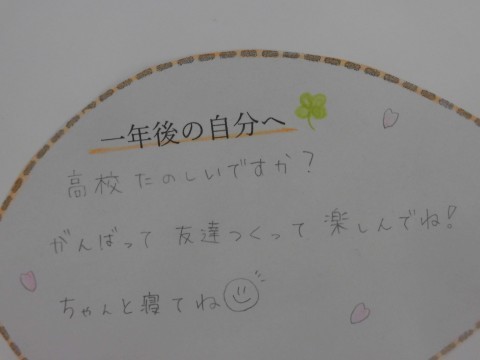 一年後の自分へ
高校たのしいですか?
がんばって 友達つくって 楽しんでね!
ちゃんと寝てね